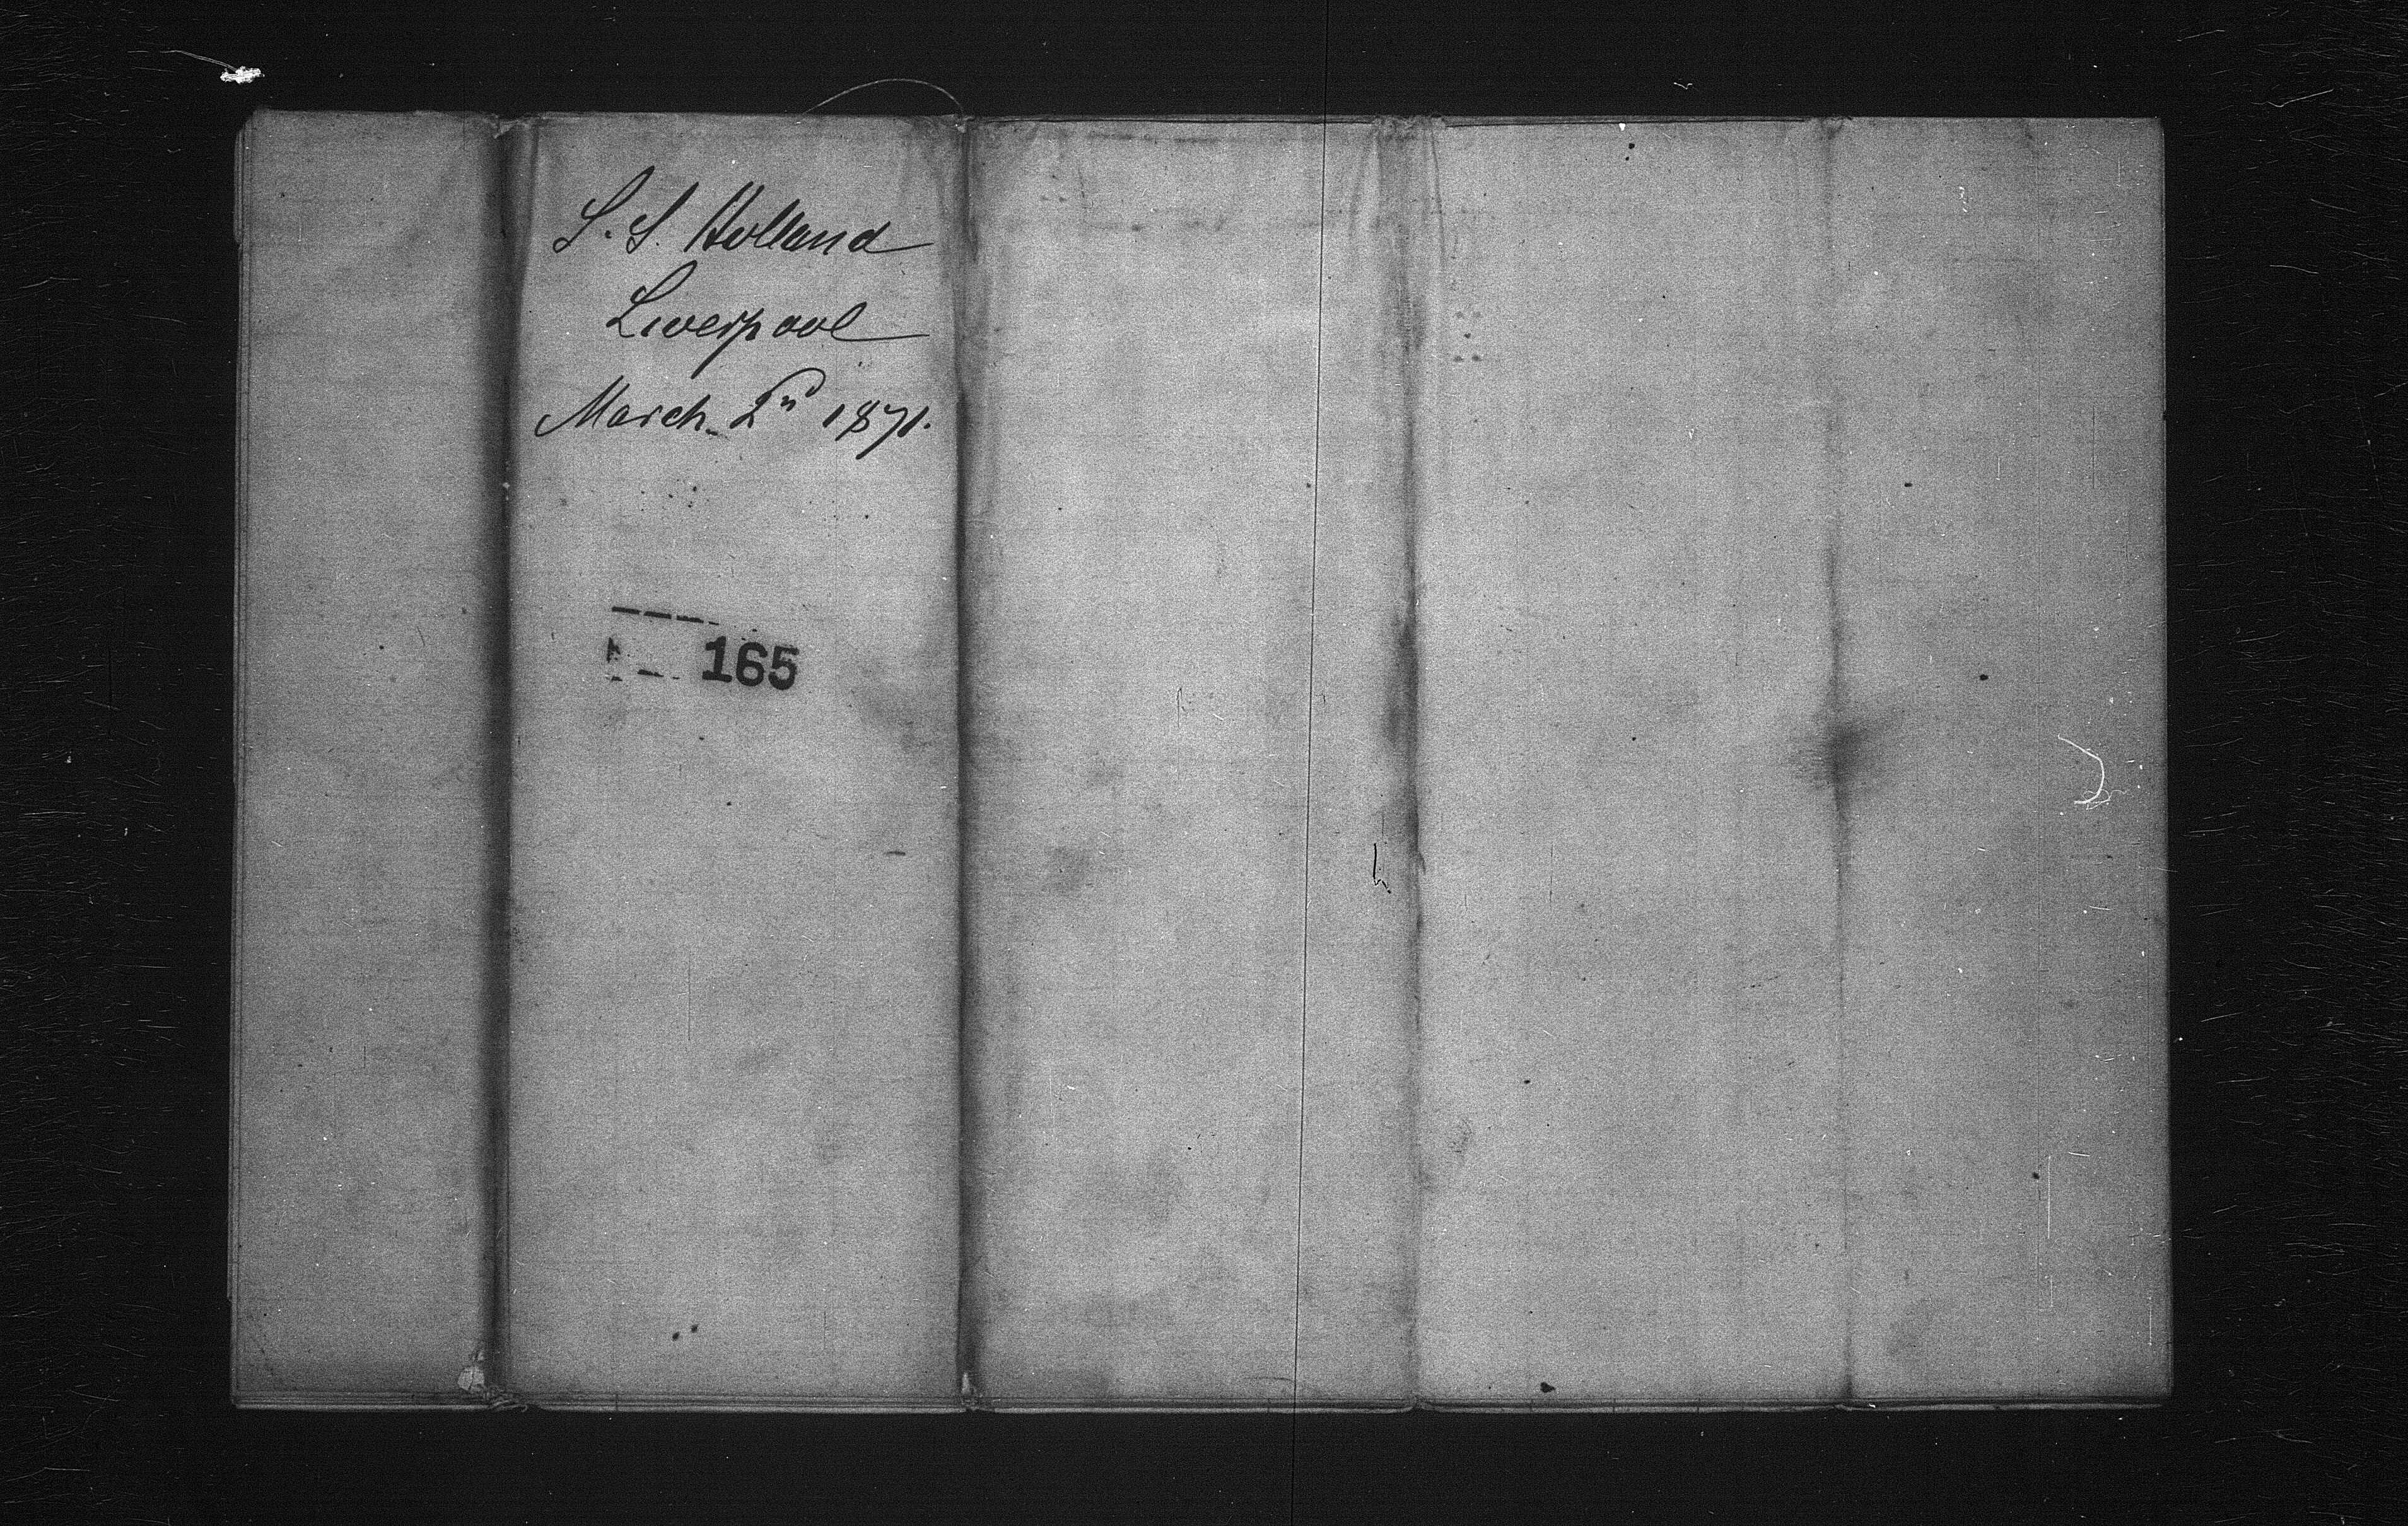 S. S. Holland
Liverpool
March 2ⁿ 1871.
165